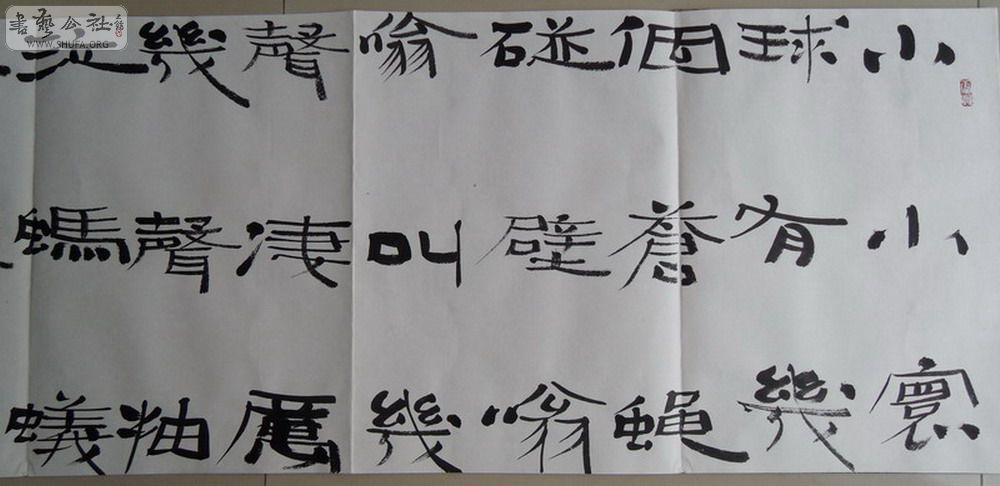 小小寰
球有幾
個蒼蠅
碰壁嗡
嗡叫幾
聲凄厲
幾聲抽
泣螞蟻
書藝公社
WWW.SHUFA.ORG